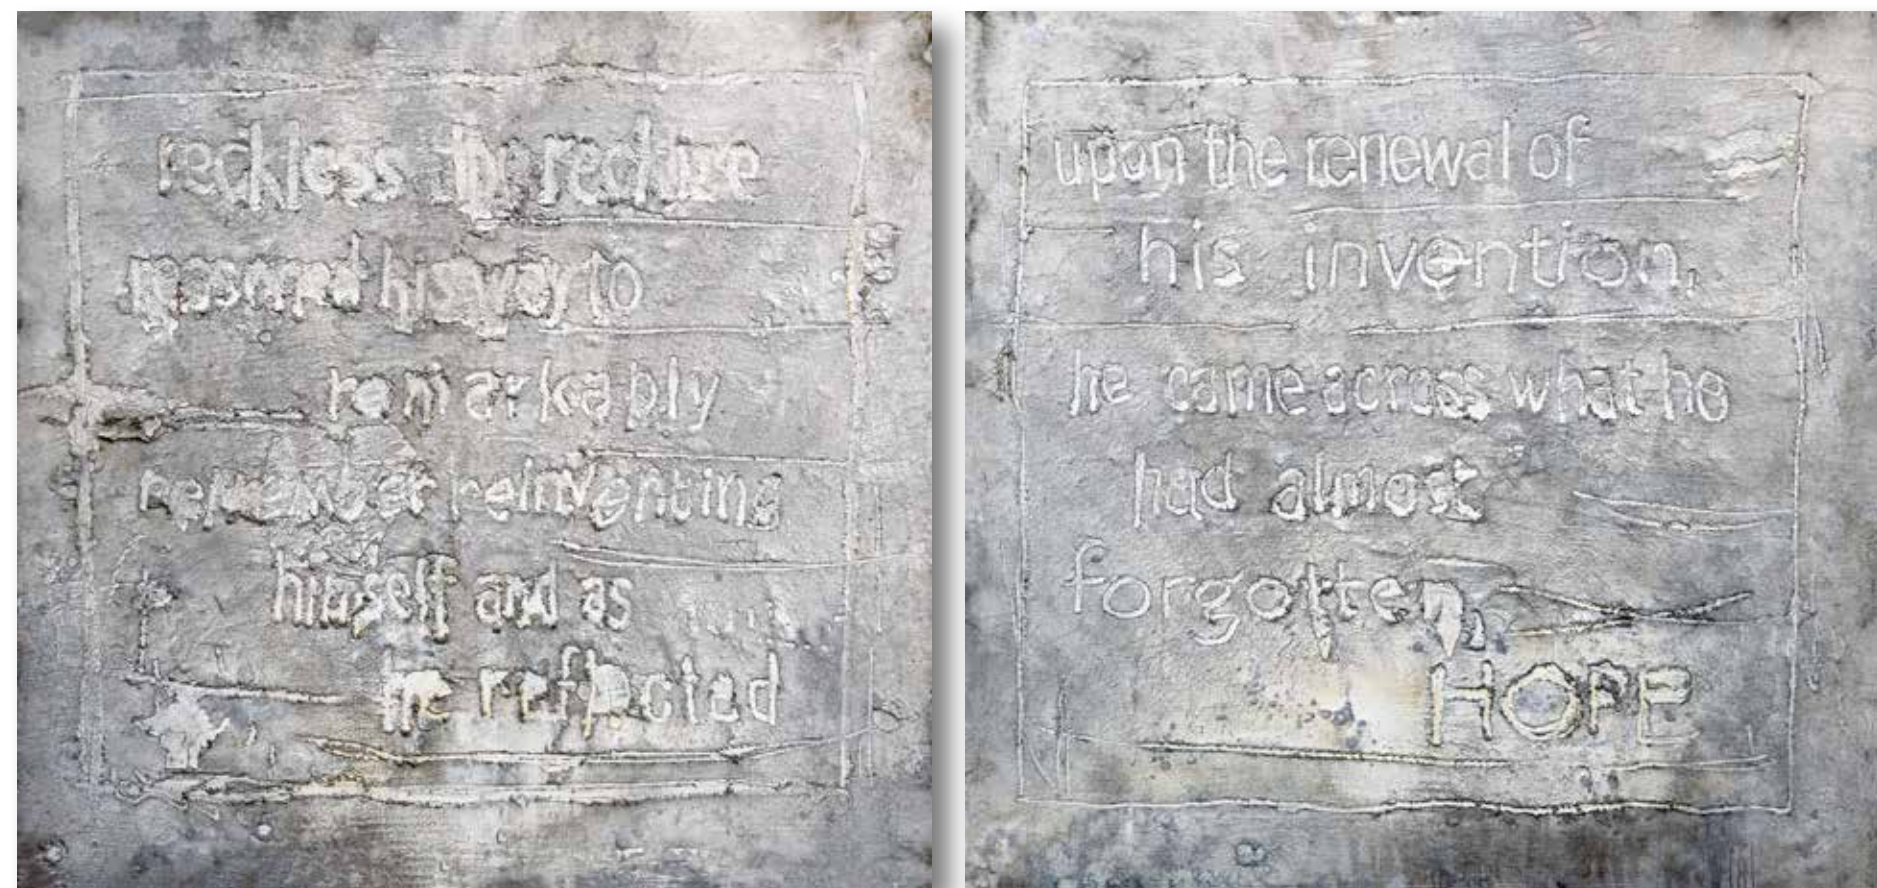 reckless the recluse
reasoned his way to
remarkably
remember reinventing
himself and as
he reflected
upon the renewal of
his invention,
he came across what he
had almost
forgotten,
HOPE